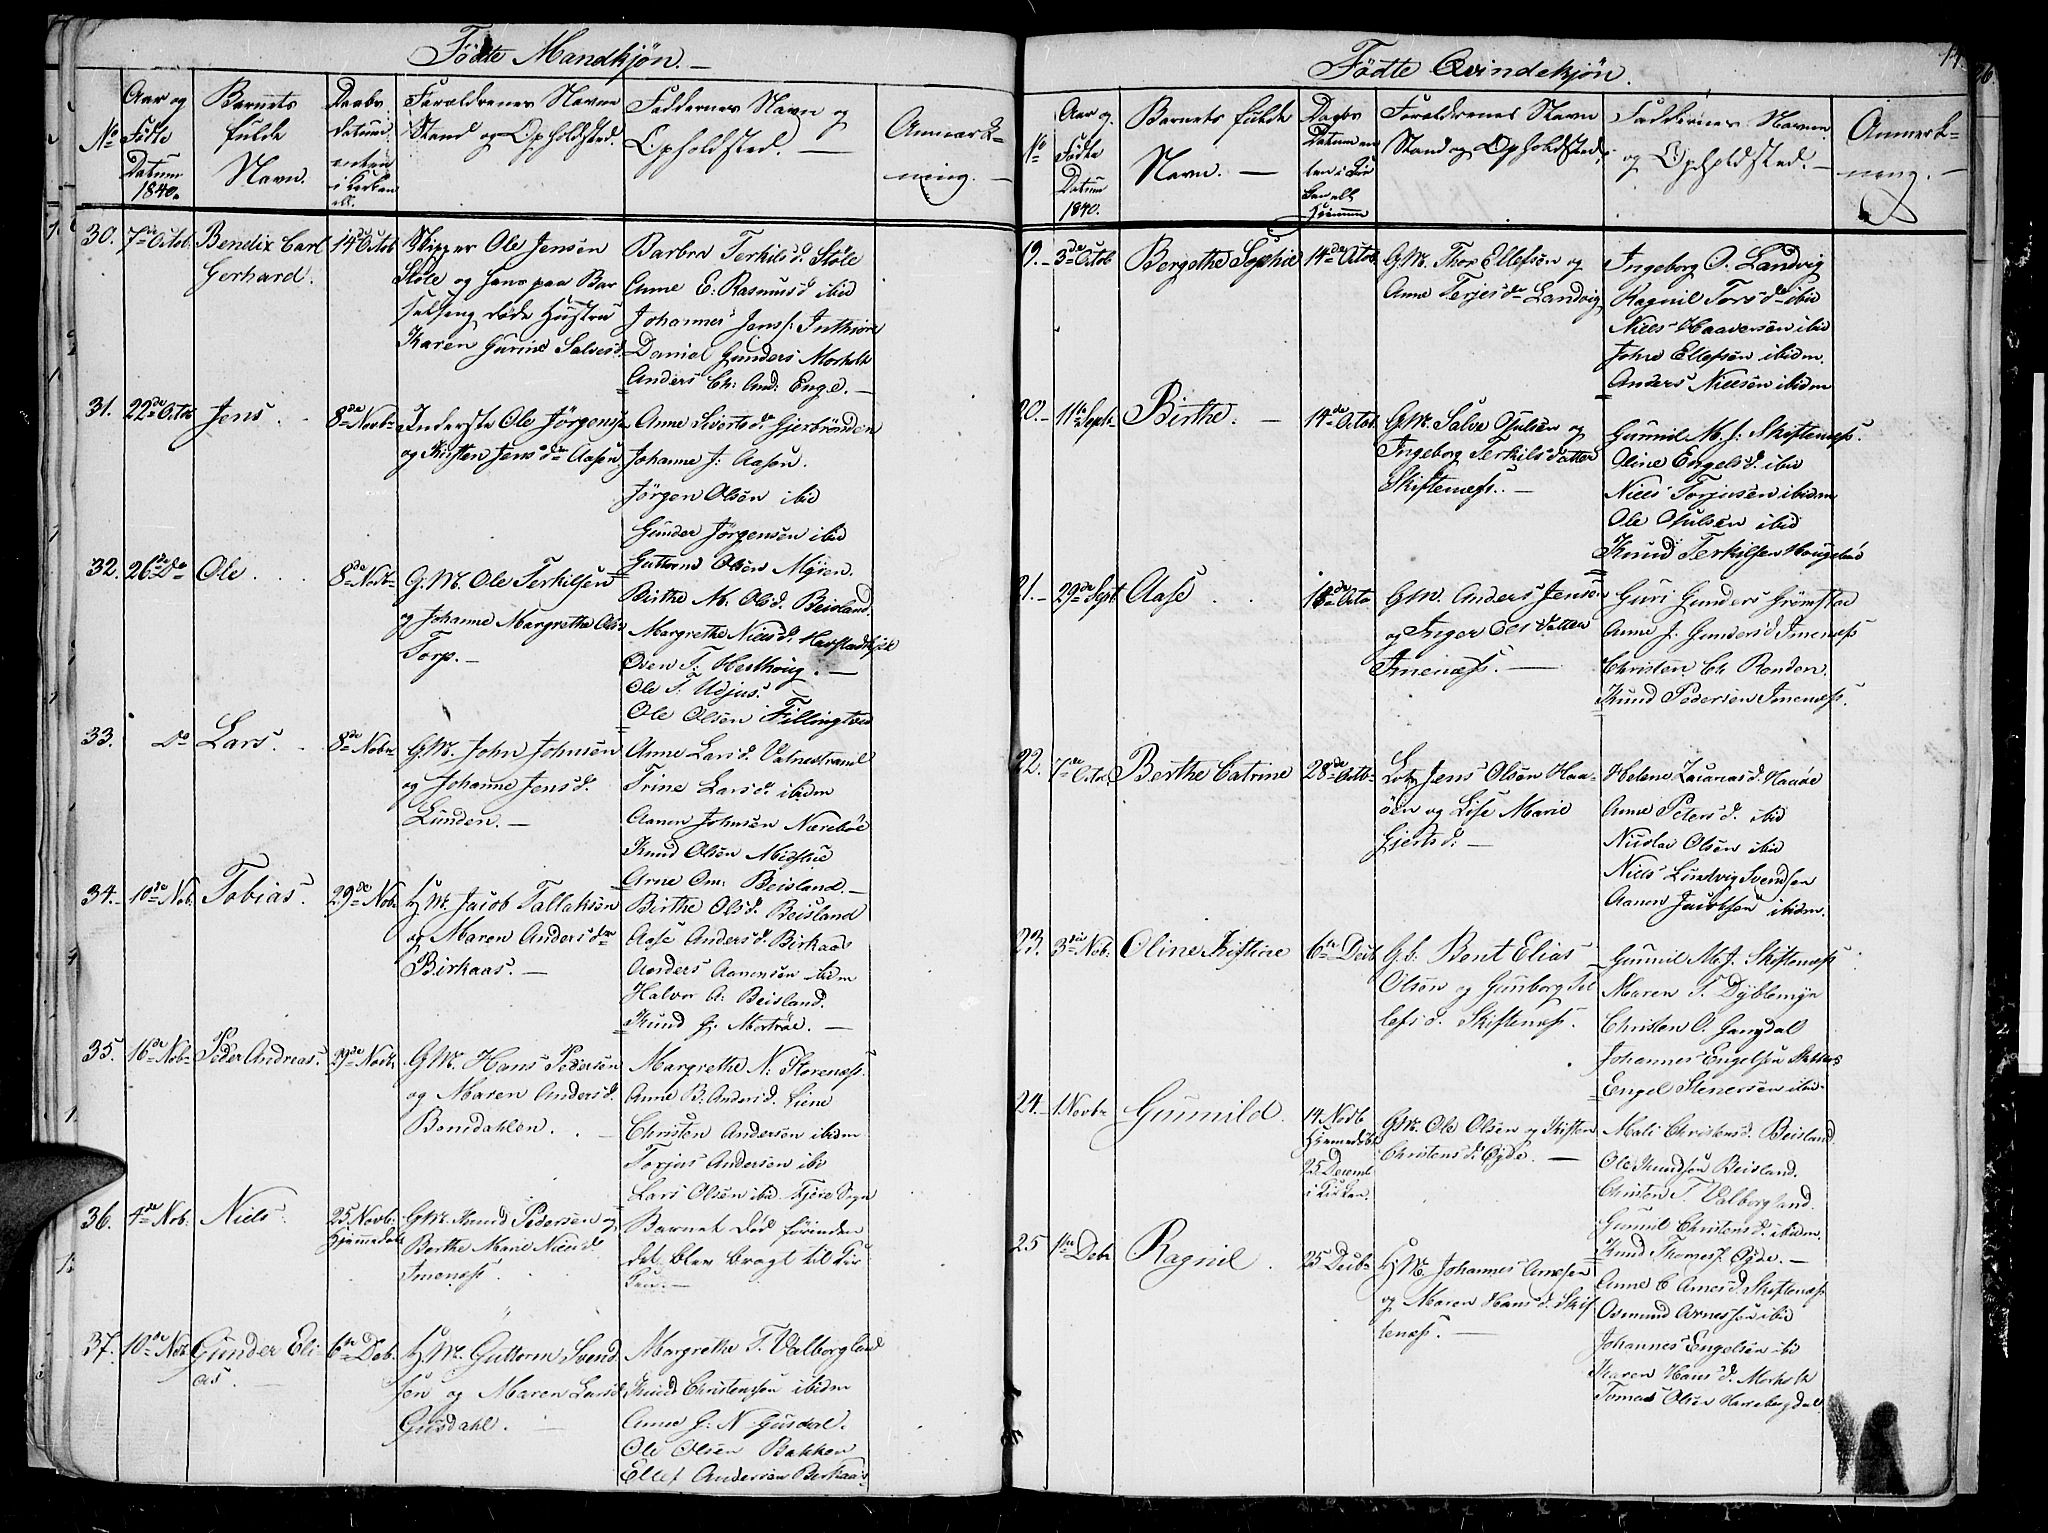 Födte Mandkjön. —
No
Aar og
Födte
Datum
1840.
Barnets
fulde
Navn.
Daabs
datum
enten
i Kirken
ell.
Foraldrenes Navne
Stand og Opholdsted.
Faddernes Navn og
Opholdsted. —
Anmærk-
ning. —
30. 7de Octob. Bendix Carl
Gerhard.
14de Octob
Skipper Ole Jensen
Støle og hans paa Bar
selseng døde Hustru
Karen Gurine Salvesd.
Barbra Terkilsd. Støle
Anne E: Rasmusd ibid
Johannes Jenss:
Daniel Gunders Morholt
Anders Ch: And: Enge. —
31. 22de Octb Jens.
8de Novbr
Inderste Ole Jörgens.
og Kirsten Jensdr Aasen
Anne Sivertsdr Gjerbrönden
Johanne J: Aasen.
Jörgen Olsön ibid
Gunder Jörgensen ibid
Guttorm Olsen Myren.
32. 26de Do Ole.
8de Novbr
G. M. Ole Terkilsen
og Johanne Margrethe Olsd
Torp. —
Birthe M. Olsd. Beisland
Margrethe Nielsd.
Oven T: Hesthoug. —
Ole T. Udjus.
Ole Olsön Fillingtved
33. Do Lars.
8de Nobr
G. M. John Johnsön
og Johanne Jensd.
Lunden. —
Anne Larsd. Vatnestrand
Trine Larsd. ibidm
Aanen Johnsen Nærebøe
Knud Olsen Midthie
Arne Om: Beisland. —
34. 10de Nob. Tobias.
29de Nob.
H. M. Jacob Tallaksön
og Maren Andersdr
Birkaas. —
Birthe Olsd. Beisland
Aase Andersd. Birkaas
Anders Aanonsön ibidm
Halvor A: Beisland.
Knud G: Mortröe. —
35. 16de Nob. Peder Andreas.
29de Novb.
G. M. Hans Pedersön
og Maren Andersd
Bomdahlen.
Margrethe N. Storenæss.
Anne B: Andersd. Liene
Christen Andersön ibidm
Torjus Andersen ibi
Lars Olsön ibid. Fjere Sogn
36. 4de Nob. Niels.
25 Novb:
Hjemmedøbt
G. M. Knud Pedersen og
Berthe Marie Nielsd.
Imenæss.
Barnet död förinden
det blev bragt til Kir
ken. —
37. 10de Nob. Gunder Eli-
as.
6te Deb.
H. M. Guttorm Svend
sen og Maren Larsd
Gusdahl.
Margrethe T. Valborgland
Knud Christensen ibidm
Anne G: N Gusdal.
Ole Olsön Bakken
Ellef Andersen Berkaas
Födte Qvindekjön.
No
Aar og
Födte
Datum
1840.
Barnets fulde
Navn. —
Daabs
Datum en
ten i Kir
ken ell.
Hiemme
Foraldrenes Navn
Stand og Opholdsted.
Faddernes Navn
og Opholdsted. —
Anmerk-
ning. —
19. 3de Octob Bergethe Sophie
14de Octob
G. M. Thor Ellefsen og
Anne Terjesdr Landvig
Ingeborg O. Landvig
Ragnil Torsdr ibid
Niels Haaversön ibid
John Ellefsön ibidm.
Anders Nielsön ibidm
20. 11te Septb Birthe.
14de Octob
G. M. Salve Olsen og
Ingeborg Terkilsdatter
Skiftenæss. —
Gunnil M. J: Skiftenæss.
Oline Engelsd. ibid
Niels Torjusön ibidm
Ole Olsen ibid
Knud Terkilsen
21. 29de Sept Aase
18de Octo
G. M. Anders Jensen
og Inger Olsdatter
Imenæss. —
Guri Gunders Grömstad
Anne J. Gundersd Imenæss
Christen Ch Ronden.
Knud Pedersen Imenæss.
22. 7de Octob. Berthe Catrine
28de Octb.
Lots Jens Olsön Haa-
öen og Lise Marie
Gjertsd. —
Helene Zacariasd. Haaöe
Anne Petersd. ibid
Nicolai Olsön ibid
Niels Ludvig Svendsen
Aanen Jacobsen ibidm.
23. 3die Nob. Oline Kistine
6te Decb
G. b. Bent Elias
Olsön og Gunborg Tel
lefsd. Skiftenæss.
Gunnil M. J. Skiftenæss
Maren T. Dyblemyr
Christen O. Gangdal
Johannes Engelsen
Engel Stenersön ibid
24. 1 Novbr Gunnild.
14 Novb
Hjemmedøbt
25 Deceml
i Kirken.
G. M. Ole Olsen og Kisten
Christensd. Egde. —
Mali Christensd. Beisland.
Ole Knudsön Beisland.
Christen T. Valborgland.
Gunnil Christensd. ibidm.
Knud Thomess. Egde. —
25 1te Debr Ragnil
25 Decbr
H. M. Johannes Arnesen
og Maren Hansd. Skif
tenæss. —
Anne C Arnesd. Skiftenæss
Osmund Arnesen ibid
Johannes Engelsön ibi
Karen Hansd. Morholt
Tomes Olsön